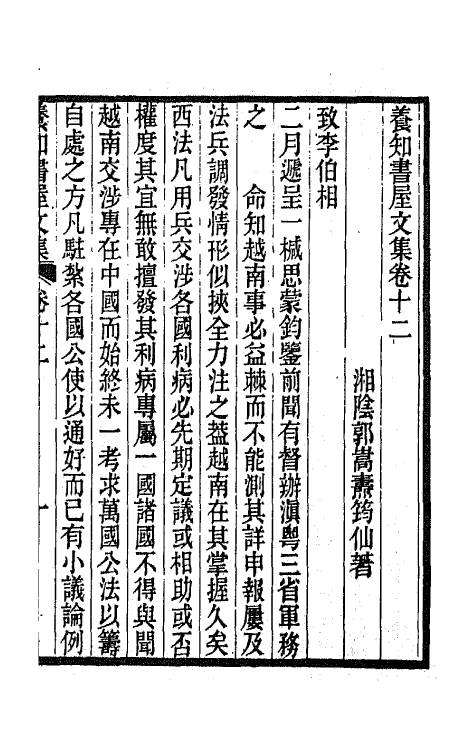 養知書屋文集卷十二
湘陰郭嵩燾筠仙著
致李伯相
二月遞呈一椷思蒙鈞鑒前聞有督辦滇粵三省軍務
之　命知越南事必益棘而不能測其詳申報屢及
法兵調發情形似挾全力注之葢越南在其掌握久矣
西法凡用兵交涉各國利病必先期定議或相助或否
權度其宜無敢擅發其利病專屬一國諸國不得與聞
越南交涉專在中國而始終未一考求萬國公法以籌
自處之方凡駐紮各國公使以通好而已有小議論例
養知書屋文集　卷十二　一